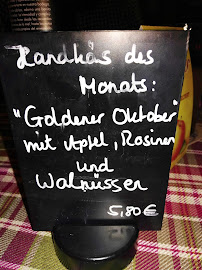 Handkäs des
Monats:
"Goldener Oktober"
mit Apfel, Rosinen
und
Walnüssen
5,80 €